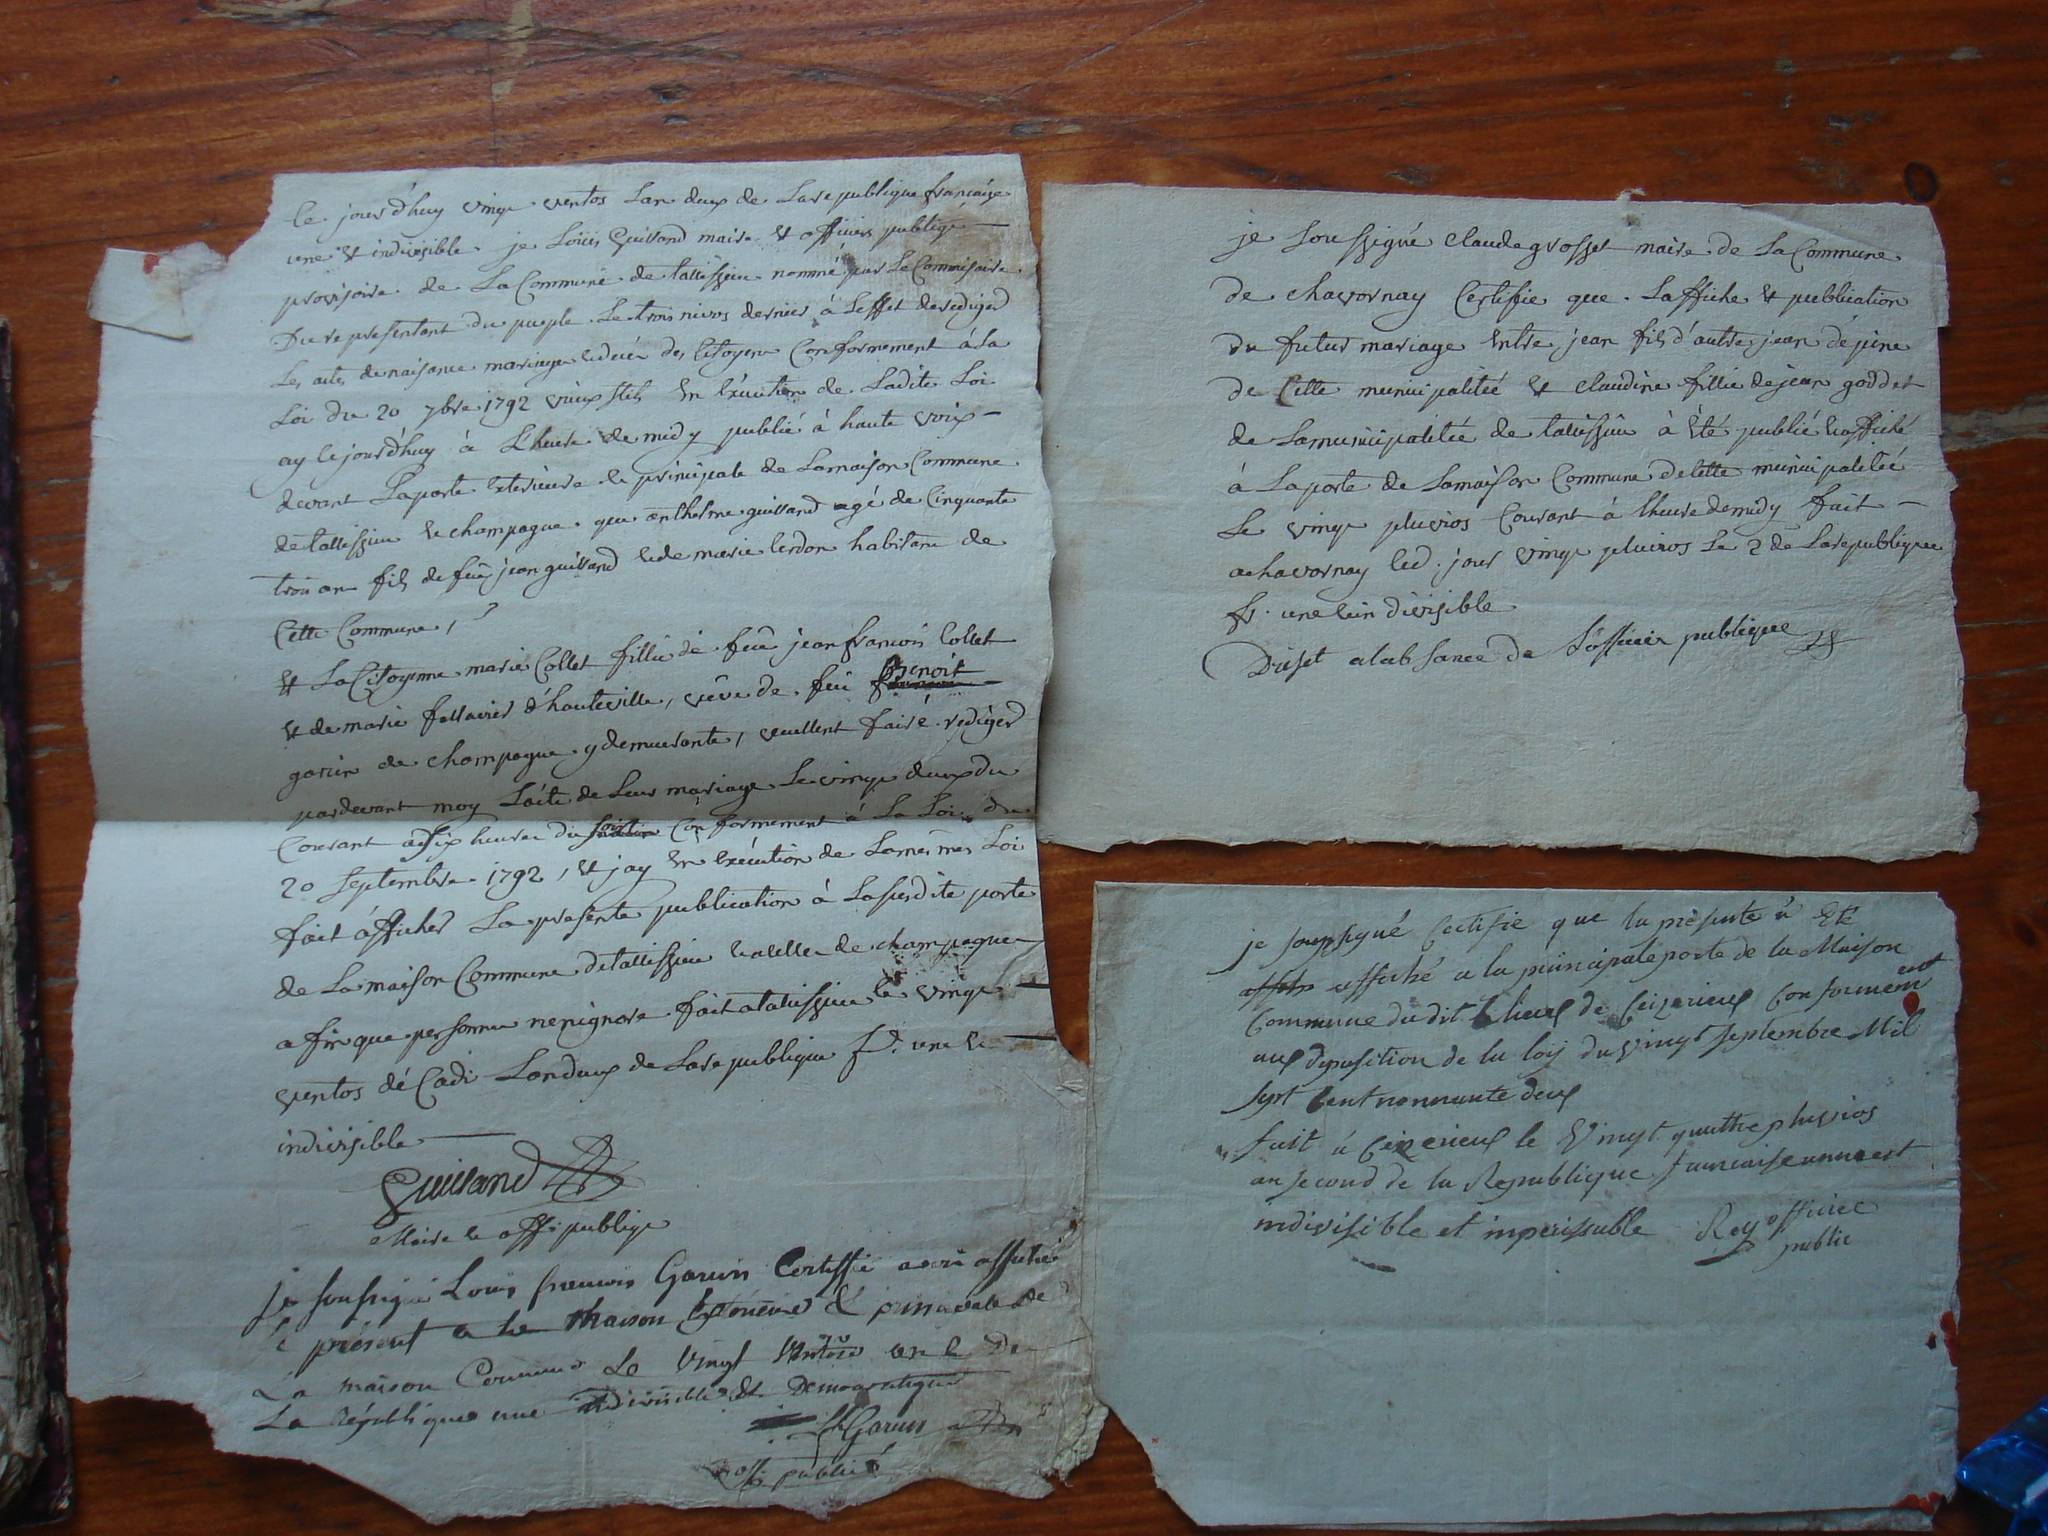 le jourd'huy vingt ventos Lan deux de La republique françaize
une & indivisible je Loüis Guilland maire & officier publiqe
provisoire de La Commune de talissieu nommé par Le Commisaire
Du representant du peuple Le trois nivos dernier à Leffet de rediger
Les actes de naisance mariage & deces des Citoyens Conformement à la
Loi du 20 7bre 1792 vieux stile En Execution de Ladite Loi
ay le jourdhuy à L'heure de midy publié à haute voix
devant La porte Exterieure & principale de La maison Commune
de talissieu & champagne que anthelme guilland agé de Cinquante
trois ans fils de feu jean guilland & de marie lerdon habitant de
Cette Commune,
& La Citoyenne marie Collet fillie de feu jean françois Collet
& de marie fallavier d'hauteville, veuve de feu Benoit
garin de champagne y demeurante, veullent faire rediger
pardevant moy L'acte de Leur mariage Le vingt deux du
Courant a six heures du soir Conformement à La Loi du
20 Septembre 1792, & jay En Execution de La mesmes Loi
fait afficher La presente publication à La susdite porte
de La maison Commune de talissieu & a celle de champagne
afin que personne nen ignore fait a talissieu le vingt
ventos décadi Lan deux de La republique f. une &
indivisible
Guilland
Maire & offi publiqe
je soussigné Louis francois Garin Certiffie avoir affiché
le présent a la Maison Exterieure & principale de
La maison Commune Le vingt Ventôse an 2 De
La République une indivisible & Democratique
Garin
offi publié
je Soussigné Claude grosset maire de La Commune
de chavornay Certifie que Laffiche & publication
du futur mariage Entre jean fils d'autre jean dépine
de Cette municipalitée & claudine fillie de jean goddet
de La municipalitée de talissieu à Été publié & affiché
à La porte de La maison Commune de Cette municipalitée
Le vingt pluvios Courant à lheure de midy fait
a chavornay led. jour vingt pluvios Le 2 de La republique
fr. une & indivisible
Driset a lab sance de L'officier publique
je soussigné Certifie que la présente à Eté
affiché a la principale porte de la Maison
Commune du dit lieux de Ceizerieux Conformement
aux disposition de la loy du vingt Septembre Mil
Sept Cent nonnante deux
fait à Ceizerieux le Vingt quattre pluvios
an second de la Republique francaise unne et
indivisible et imperissable Rey officier
public